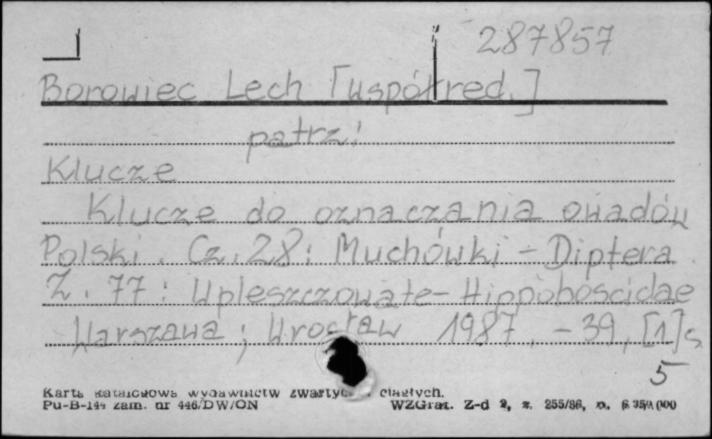 287857
Borowiec Lech [współred.]
patrz:
Klucze
Klucze do oznaczania owadów
Polski. Cz. 28: Muchówki - Diptera
Z. 77: Wpleszczowate - Hippoboscidae
Warszawa; Wrocław 1987. - 39, [1] s
5
Karta katalogowa wydawnictw zwartych ciągłych.
Pu-B-144 zam. nr 446/DW/ON WZGraf. Z-d 2, z. 255/86, n.